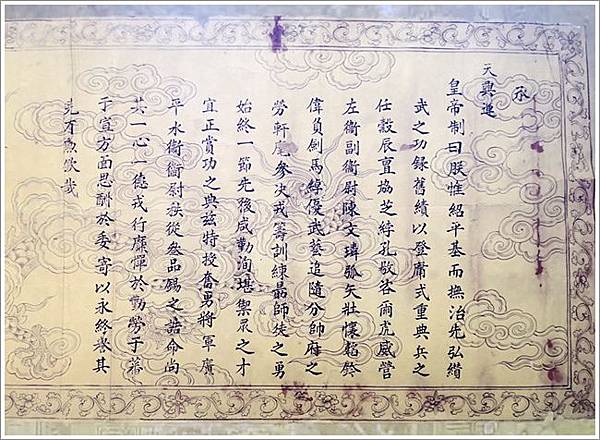 承
天興運
皇帝制曰朕惟紹平基而撫治先弘纘
武之功錄舊績以登庸式重典兵之
任穀辰亶協芝綍孔敭咨爾虎威營
左衛副衛尉陳文璋弧矢壯懷韜鈐
偉負劍馬綽優武藝追隨分帥府之
勞軒麾參決戎籌訓練最師徒之勇
始終一節先後咸勤洵堪禦眾之才
宜正賞功之典茲特授奮勇將軍廣
平水衛衛尉秩從叁品錫之誥命尚
其一心一德戎行靡憚於勤勞于蕃
于宣方面思酬於委寄以永終譽其
克欽哉